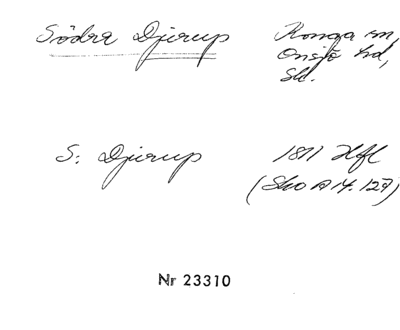 Södra Djurup Konga sn,
Onsjö hd,
Sk.
S: Djurup 1811 Hfl
(Sko A 14. 127)
Nr 23310